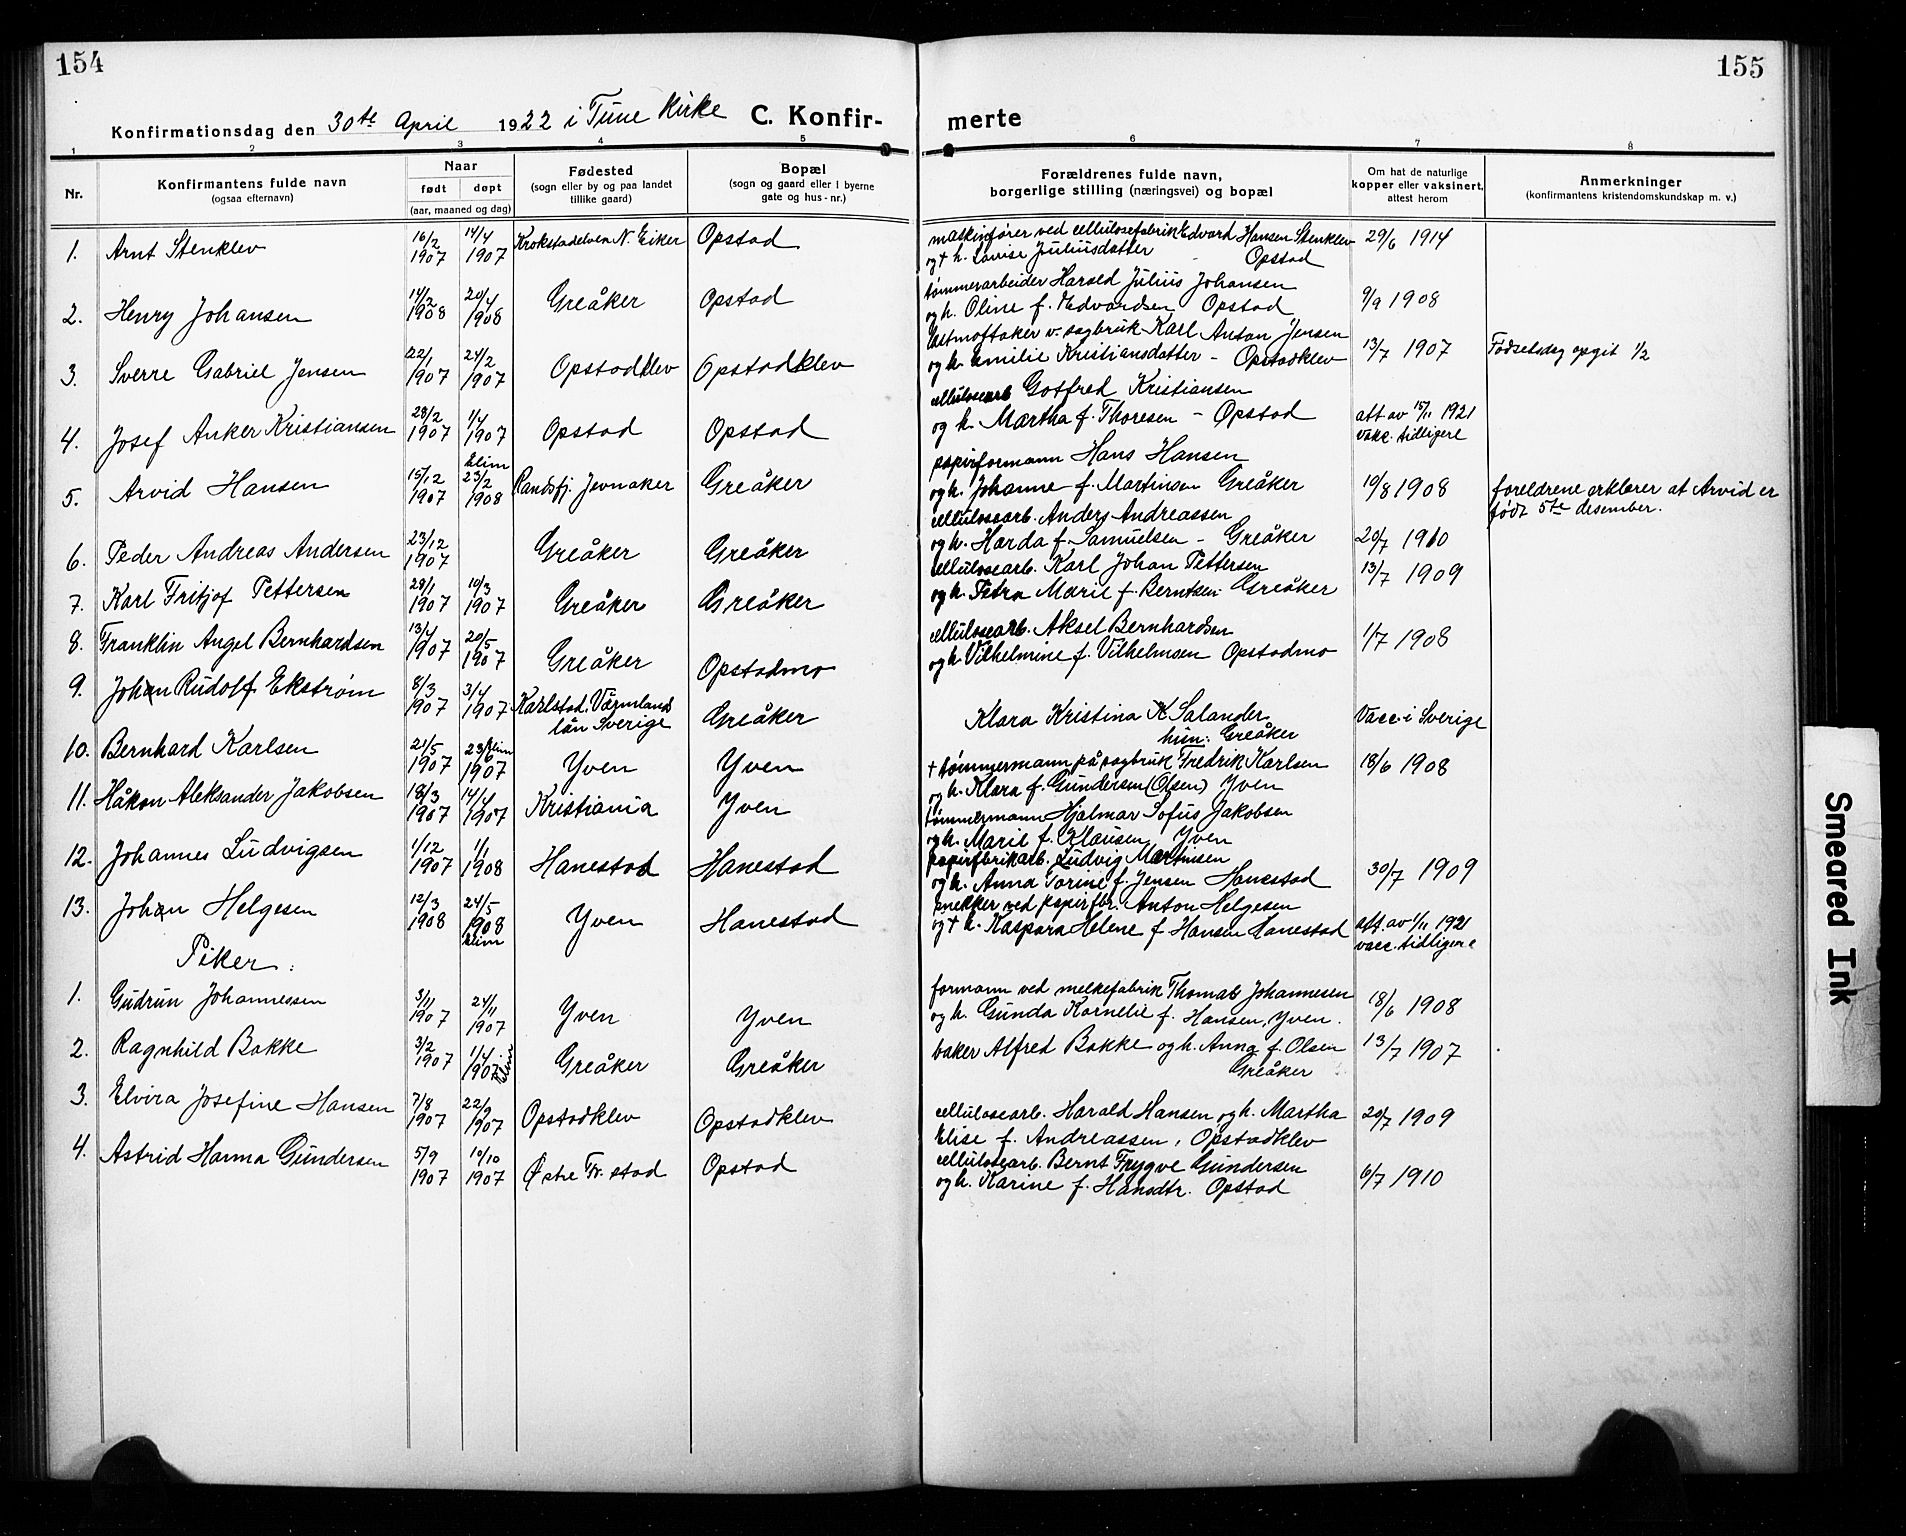 154
155
Konfirmationsdag den 30te April 1922 i Tune Kirke C. Konfir-
merte
1 2 3 4 5 6 7 8
Nr.
Konfirmantens fulde navn
(ogsaa efternavn)
Naar
født døpt
(aar, maaned og dag)
Fødested
(sogn eller by og paa landet
tillike gaard)
Bopæl
(sogn og gaard eller i byerne
gate og hus-nr.)
Forældrenes fulde navn,
borgerlige stilling (næringsvei) og bopæl
Om hat de naturlige
kopper eller vaksinert,
attest herom
Anmerkninger
(konfirmantens kristendomskundskap m. v.)
1. Arnt Stenklev 16/2 1907 14/4 1907 Krokstadelven N. Eiker Opstad maskinfører ved cellulosefabrik Edvard Hansen Stenklev 29/6 1914
og + h. Lovise Juliusdatter - Opstad
2. Henry Johansen 14/2 1908 20/4 1908 Greåker Opstad tømmerarbeider Harald Julius Johansen
og h. Oline f. Edvardsen Opstad 9/9 1908
3. Sverre Gabriel Jensen 22/1 1907 24/2 1907 Opstadklev Opstadklev Lastmottaker v. sagbruk Karl Anton Jensen
og h. Emilie Kristiansdatter - Opstadklev 13/7 1907 Fødselsdag opgit 1/2
4. Josef Anker Kristiansen 28/2 1907 1/4 1907 Opstad Opstad cellulosearb Gotfred Kristiansen
og h. Martha f. Thoresen - Opstad att av 15/11 1921
vacc. tidligere
5. Arvid Hansen 15/12 1907 Elim 23/2 1908 Randsfj. Jevnaker Greåker papirformann Hans Hansen
og h. Johanne f. Martinsen Greåker 19/8 1908 foreldrene erklærer at Arvid er
født 5te desember.
6. Peder Andreas Andersen 23/12 1907 Greåker Greåker cellulosearb. Anders Andreassen
og h. Harda f. Samuelsen - Greåker 20/7 1910
7. Karl Fritjof Pettersen 28/1 1907 10/3 1907 Greåker Greåker cellulosearb. Karl Johan Pettersen 13/7 1909
og h. Petra Marie f. Berntsen. Greåker
8. Franklin Angel Bernhardsen 13/4 1907 20/5 1907 Greåker Opstadmo cellulosearb. Aksel Bernhardsen
og h. Vilhelmine f. Vilhelmsen Opstadmo 1/7 1908
9. Johan Rudolf Ekstrøm 8/3 1907 3/4 1907 Karlstad. Värmlands
län Sverige Greåker Klara Kristina K Salander Vacc. i Sverige
Greåker
10. Bernhard Karlsen 21/5 1907 23/6 Elim 1907 Yven Yven + tømmermann på sagbruk Fredrik Karlsen 18/6 1908
og h. Klara f. Gundersen (Olsen) Yven
11. Håkon Aleksander Jakobsen 18/3 1907 14/4 1907 Kristiania Yven tømmermann Hjalmar Sofus Jakobsen
og h. Marie f. Klausen Yven
12. Johannes Ludvigsen 1/12 1907 1/1 1908 Hanestad Hanestad papirfabrikarb. Ludvig Martinsen
og h. Anna Torine f. Jensen Hanestad 30/7 1909
13. Johan Helgesen 12/3 1908 24/5 1908 Elim Yven Hanestad snekker ved papirfbr. Anton Helgesen
og + h. Kaspara Helene f Hansen Hanestad att. av 1/11 1921
vacc. tidligere
Piker:
1. Gudrun Johannessen 3/11 1907 24/11 1907 Yven Yven formann ved melkefabrik Thomas Johannesen
og h. Gunda Kornelie f. Hansen, Yven. 18/6 1908
2. Ragnhild Bakke 3/2 1907 1/4 1907 Elim Greåker Greåker baker Alfred Bakke og h. Anna f. Olsen 13/7 1907
Greåker
3. Elvira Josefine Hansen 7/8 1907 22/9 1907 Opstadklev Opstadklev cellulosearb. Harald Hansen og h. Martha 20/7 1909
Elise f. Andreassen, Opstadklev
4. Astrid Hanna Gundersen 5/9 1907 10/10 1907 Østre Fr.stad Opstad cellulosearb. Bernt Trygve Gundersen
og h. Karine f. Hansdtr. Opstad 6/7 1910
Smeared Ink